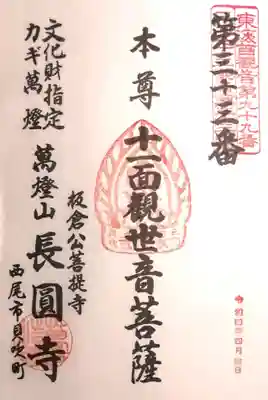 東海圏観音第九十九番
第三十三番
本尊 十一面觀世音菩薩
板倉公菩提寺
萬燈山 長圓寺
西尾市貝吹町
文化財指定
カギ萬燈